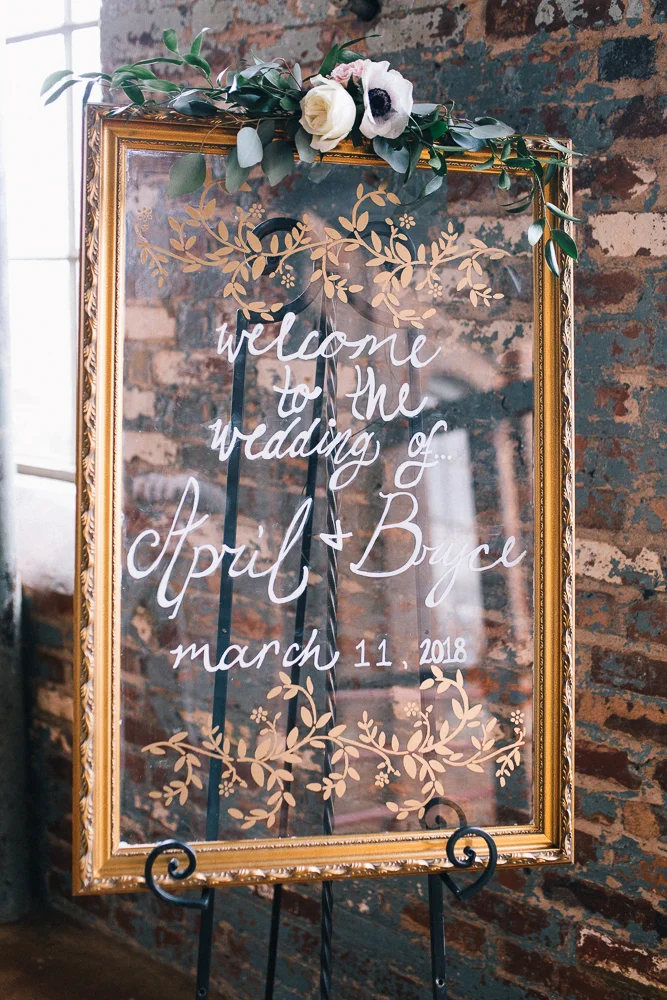 welcome
to the
wedding of...
April + Bryce
march 11, 2018